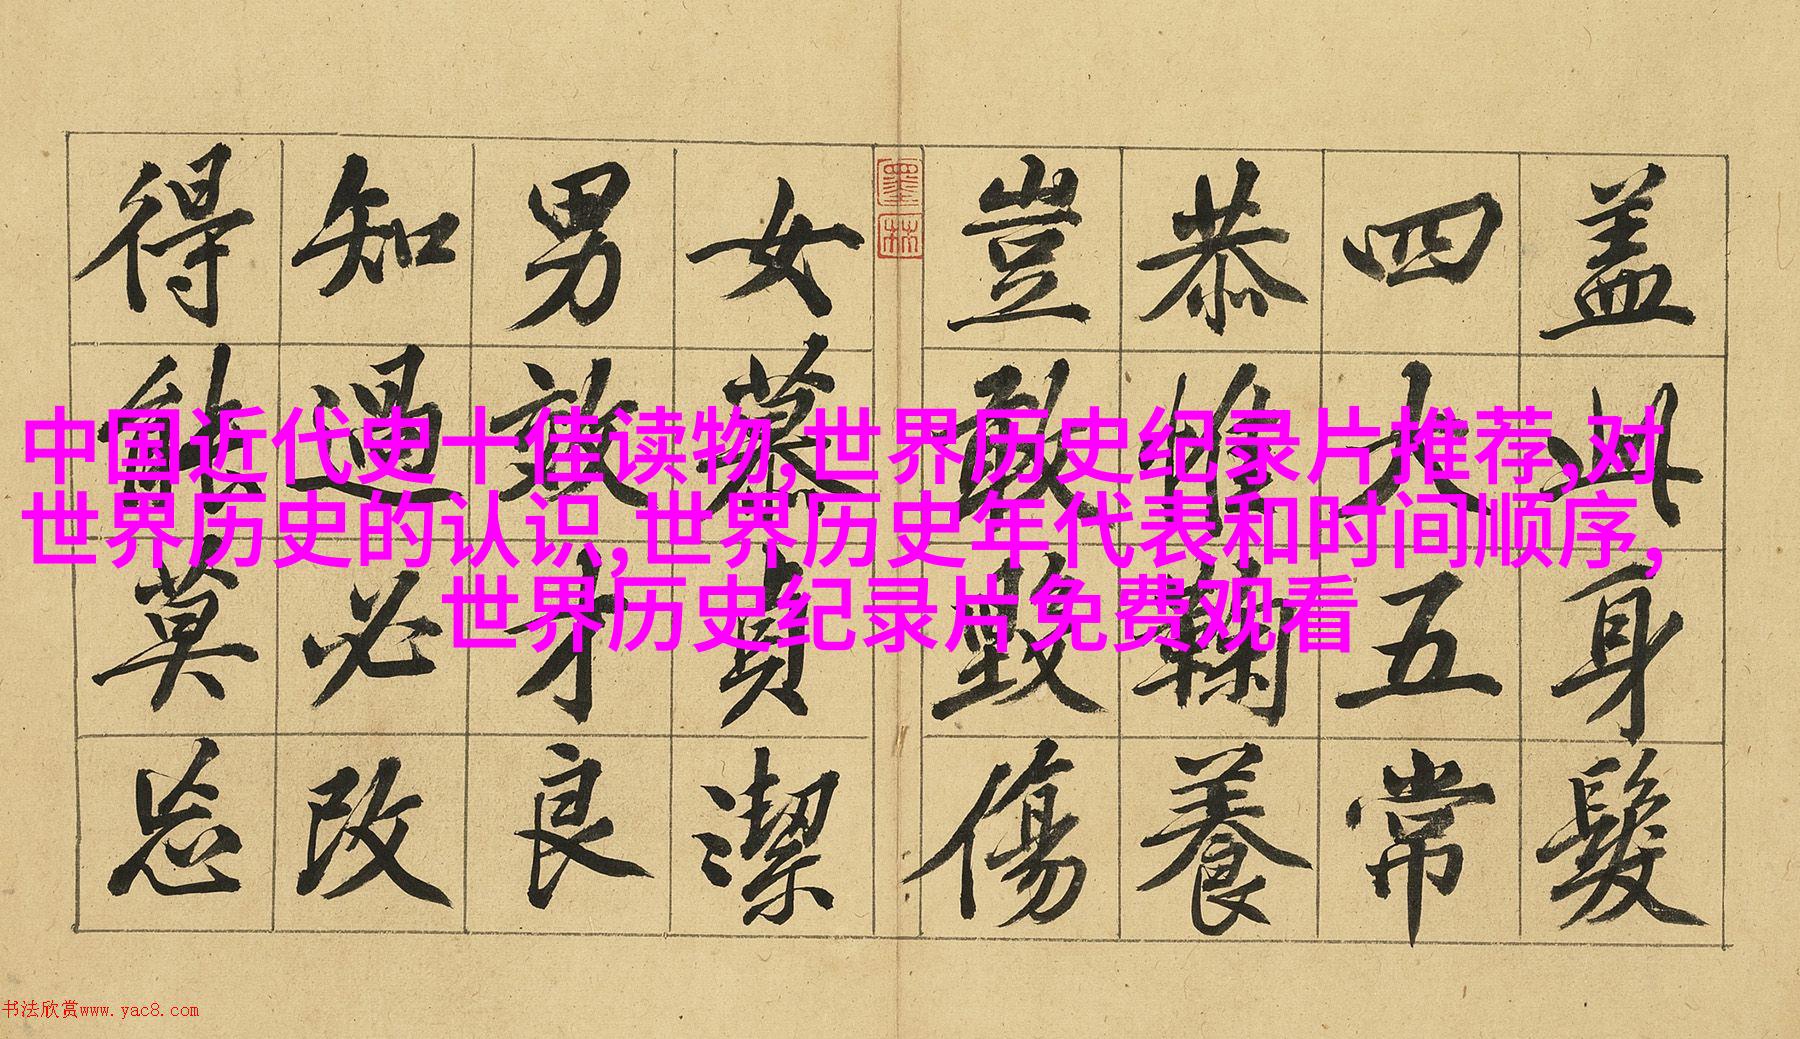 盖此身髮
四大五常
恭惟鞠養
豈敢毀傷
墨林
女慕貞潔
男效才良
知過必改
得能莫忘
中国近代史十佳读物,世界历史纪录片推荐,对
世界历史的认识,世界历史年代表和时间顺序,
世界历史纪录片免费观看
书法欣赏www.yac8.com